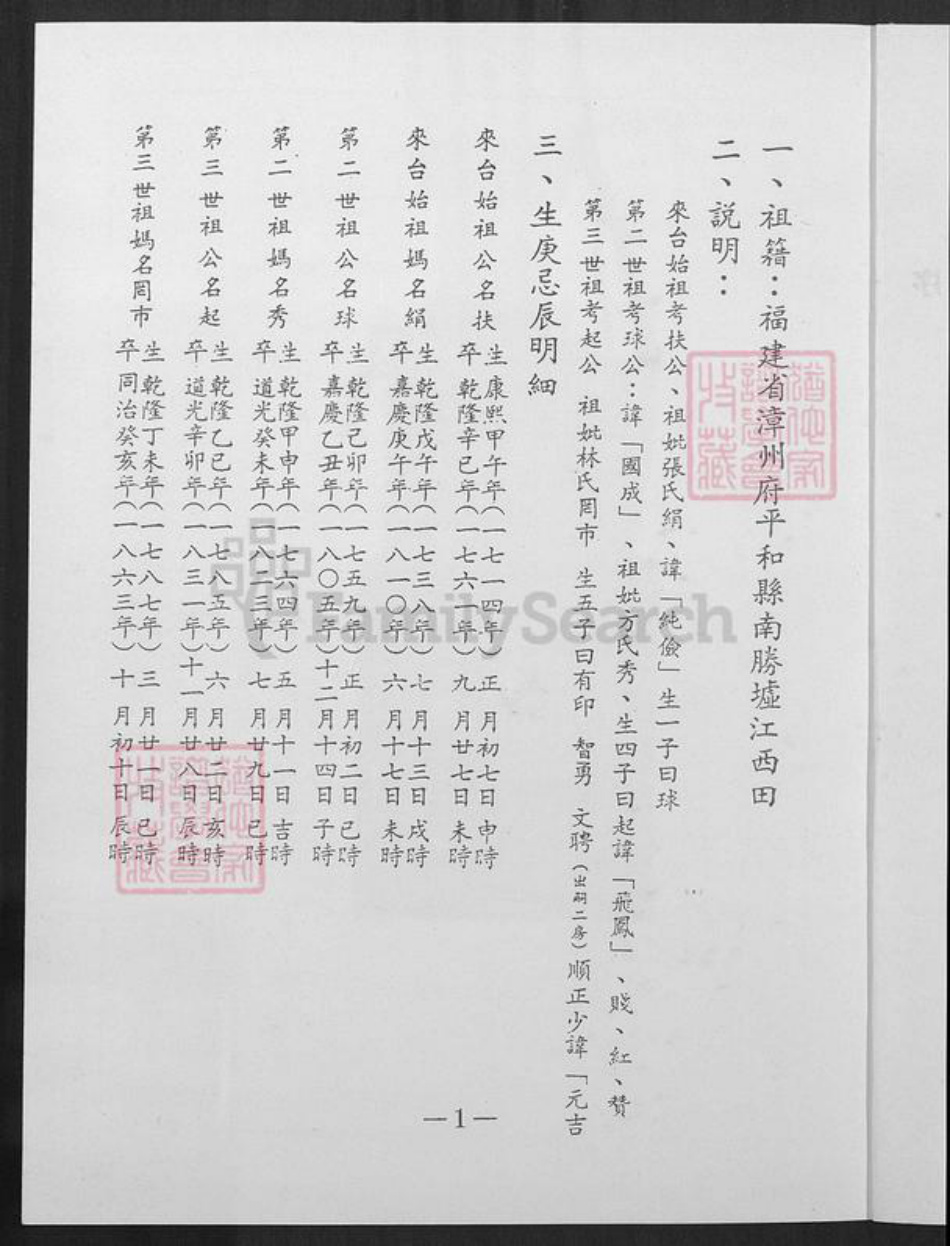 一、祖籍：福建省漳州府平和縣南勝墟江西田
二、說明：
來台始祖考扶公、祖妣張氏絹、諱「純儉」生一子曰球
第二世祖考球公：諱「國成」、祖妣方氏秀、生四子曰起諱「飛鳳」、賤、紅、賛
第三世祖考起公 祖妣林氏罔市 生五子曰有印 智勇 文聘（出嗣二房）順正少諱「元吉
三、生庚忌辰明細
來台始祖公名扶 生康熙甲午年（一七一四年）正月初七日申時
卒乾隆辛巳年（一七六一年）九月廿七日未時
來台始祖媽名絹 生乾隆戊午年（一七三八年）七月十三日戌時
卒嘉慶庚午年（一八一〇年）六月十七日未時
第二世祖公名球 生乾隆己卯年（一七五九年）正月初二日巳時
卒嘉慶乙丑年（一八〇五年）十二月十四日子時
第二世祖媽名秀 生乾隆甲申年（一七六四年）五月十一日吉時
卒道光癸未年（一八二三年）七月廿九日巳時
第三世祖公名起 生乾隆乙巳年（一七八五年）六月廿二日亥時
卒道光辛卯年（一八三一年）十一月廿八日辰時
第三世祖媽名罔市 生乾隆丁未年（一七八七年）三月廿一日巳時
卒同治癸亥年（一八六三年）十月初十日辰時
—1—
FamilySearch